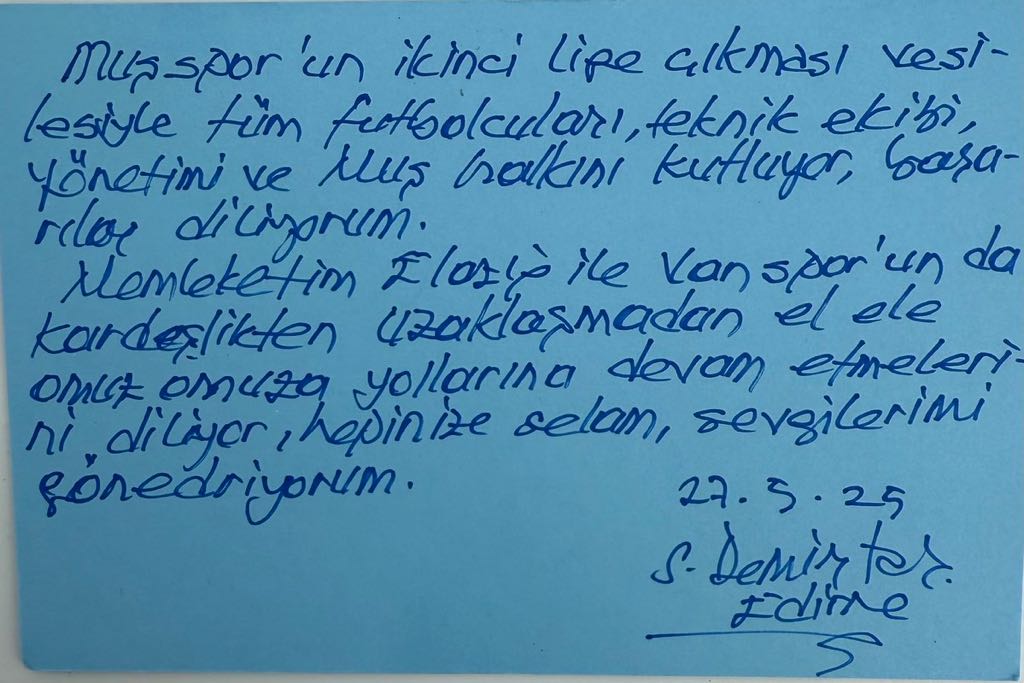 Muşspor'un ikinci lige çıkması vesi-
lesiyle tüm futbolcuları, teknik ekibi,
yönetimi ve Muş halkını kutluyor, başa-
rılar diliyorum.
Memleketim Elazığ ile Vanspor'un da
kardeşlikten uzaklaşmadan el ele
omuz omuza yollarına devam etmeleri-
ni diliyor, hepinize selam, sevgilerimi
gönedriyorum.
27.5.25
S. Demirtaş
Edirne